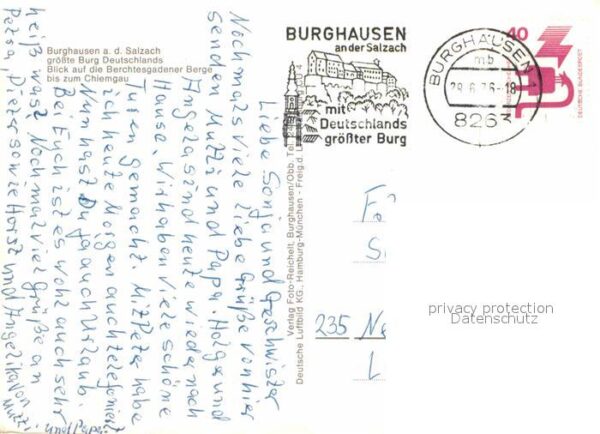 Burghausen a. d. Salzach
größte Burg Deutschlands
Blick auf die Berchtesgadener Berge
bis zum Chiemgau
Liebe Sonja und Geschwister
Nochmals viele liebe Grüße von hier
senden Mutti und Papa. Holger und
Angela sind heute wieder nach
Hause. Wir haben viele schöne
Turen gemacht. Mit Peter habe
ich heute Morgen auch telefoniert
Nun hast Du ja auch Urlaub.
Bei Euch ist es wohl auch sehr
heiß was? Nochmal viel Grüße an
Petra, Dieter sowie Horst und Angelika von
Mutti
Verlag Foto-Reichelt, Burghausen/Obb. Tel.
Deutsche Luftbild KG., Hamburg-München - Freig. d.
BURGHAUSEN
an der Salzach
mit
Deutschlands
größter Burg
BURGHAUSEN
mb
28.6.76-18
8263
40
DEUTSCHE BUNDESPOST
235 Ne
privacy protection
Datenschutz